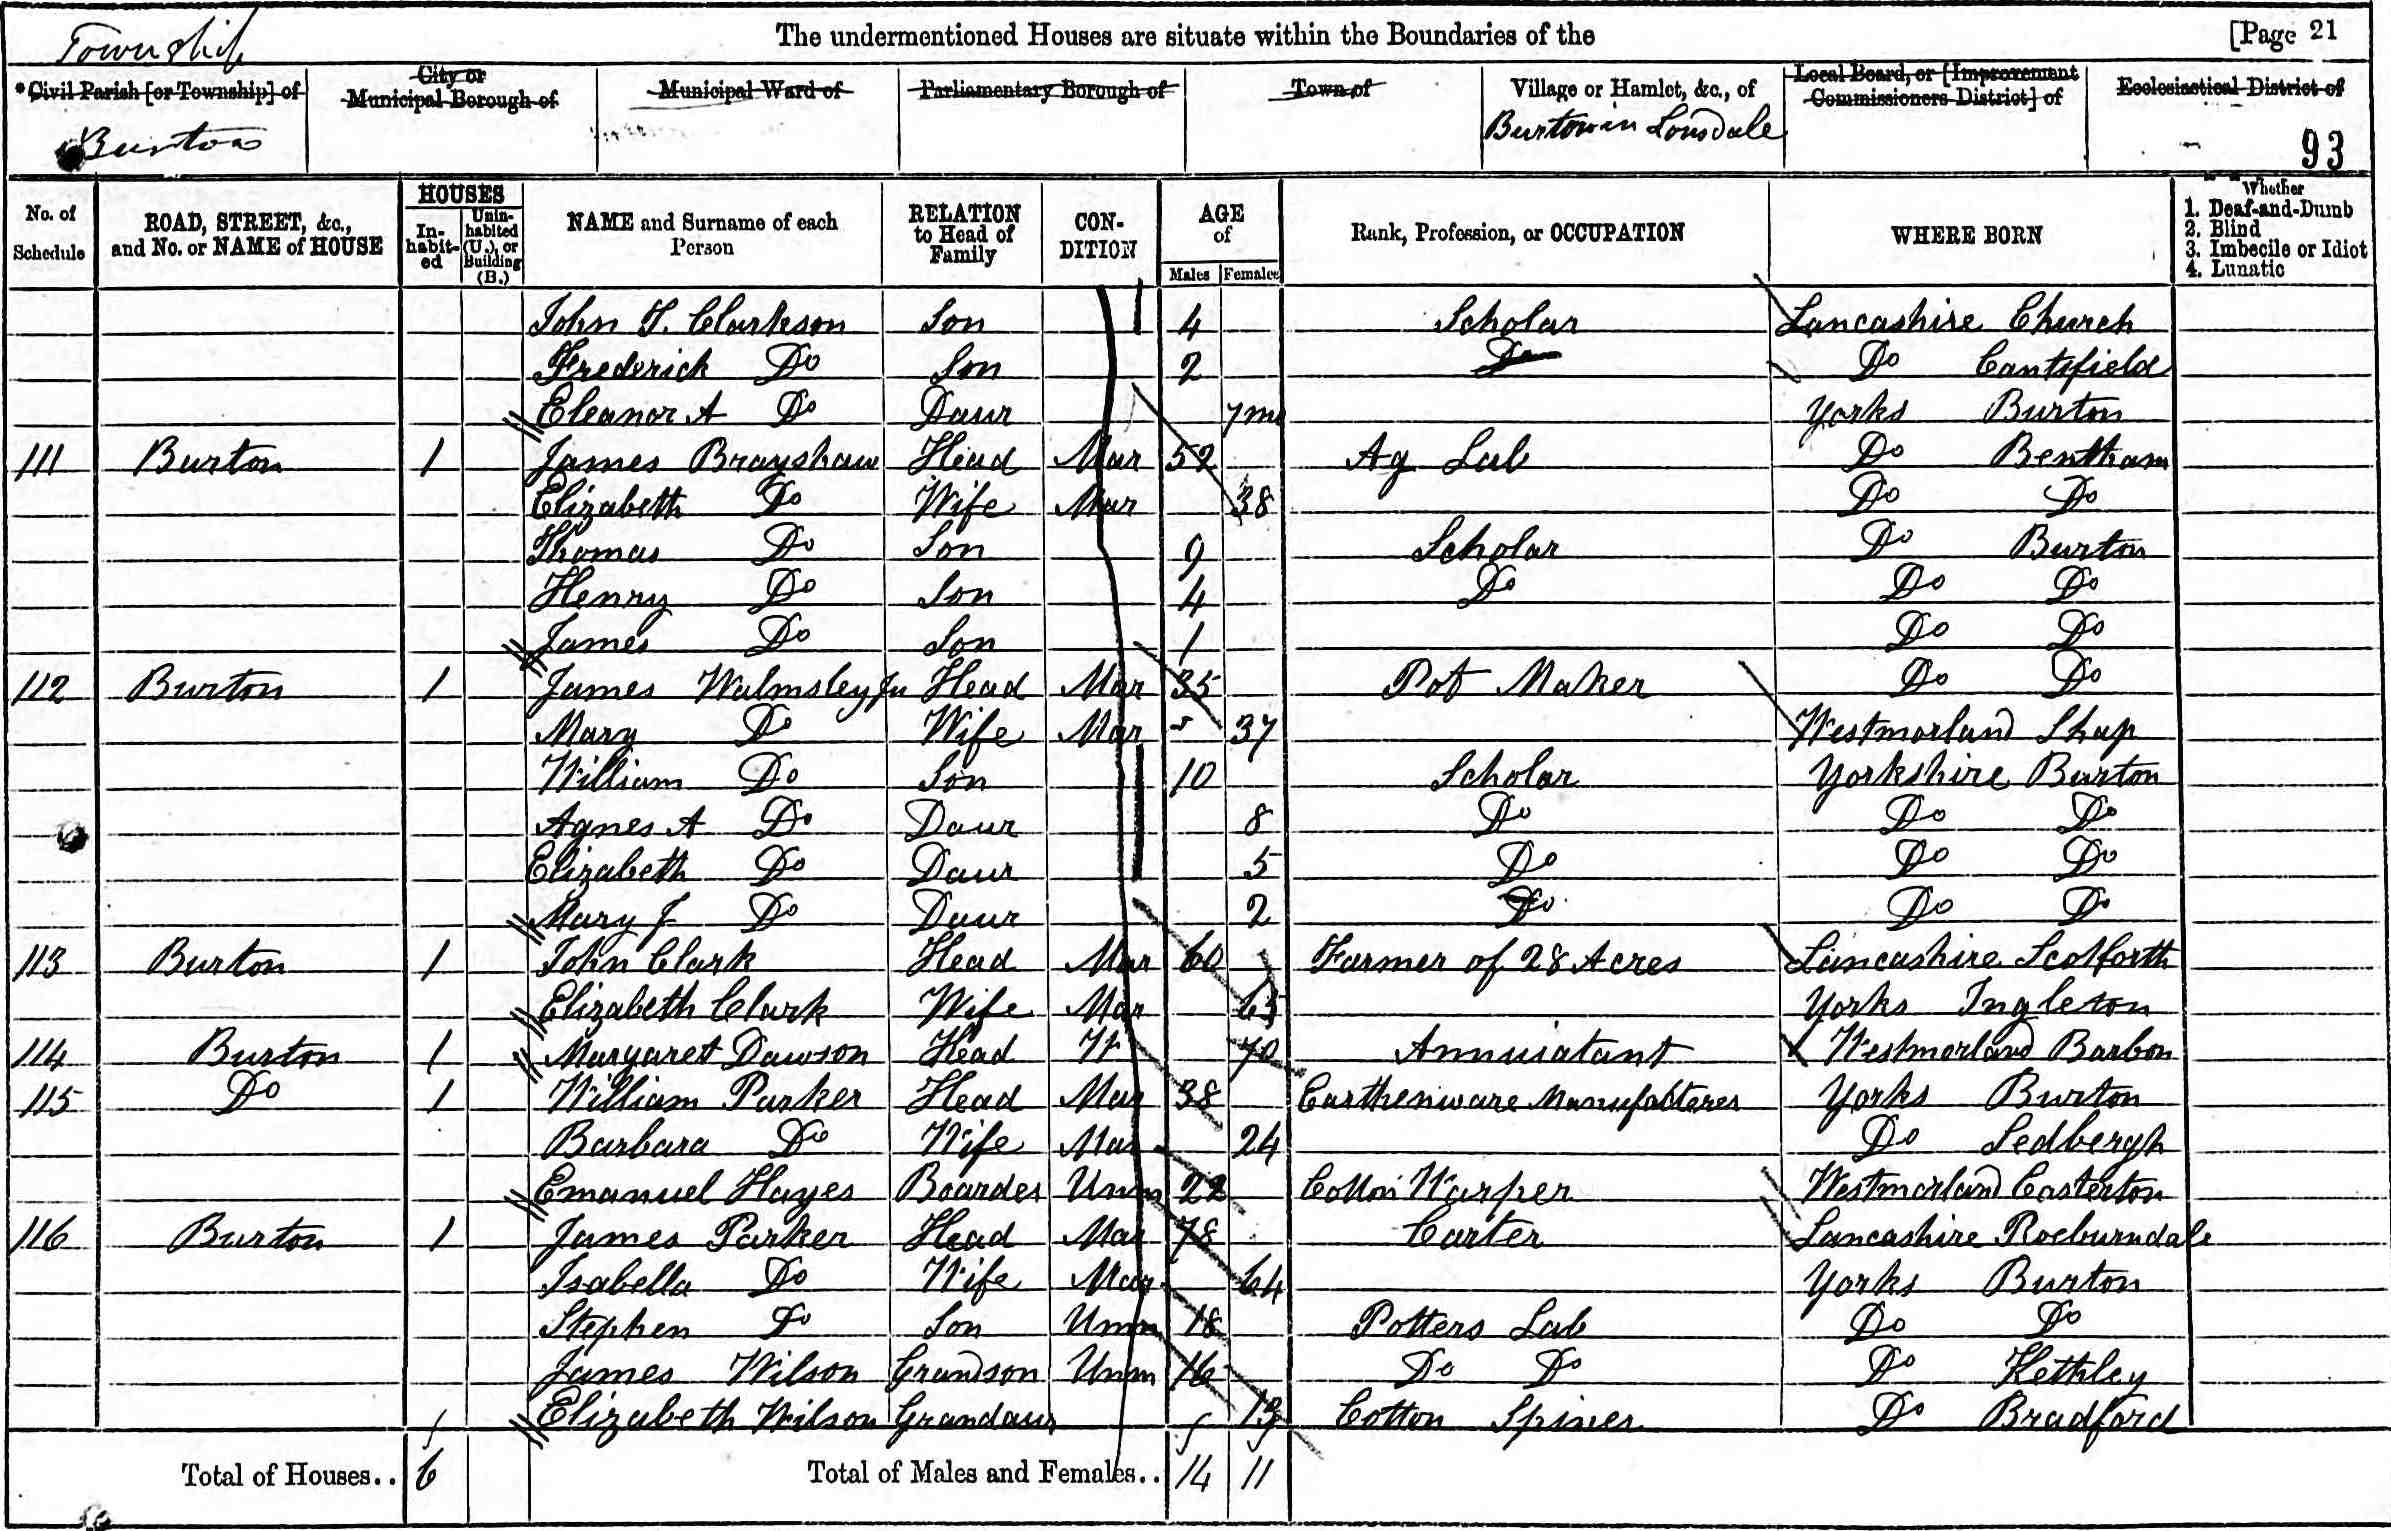 The undermentioned Houses are situate within the Boundaries of the [Page 21
Township
*Civil Parish [or Township] of City or Municipal Borough of Municipal Ward of Parliamentary Borough of Town of Village or Hamlet, &c., of Local Board, or [Improvement Commissioners District] of Ecclesiastical District of
Burton Burton in Lonsdale 93
No. of Schedule ROAD, STREET, &c., and No. or NAME of HOUSE HOUSES In-habit-ed Unin-habited (U.), or Building (B.) NAME and Surname of each Person RELATION to Head of Family CON-DITION AGE of Males Females Rank, Profession, or OCCUPATION WHERE BORN Whether 1. Deaf-and-Dumb 2. Blind 3. Imbecile or Idiot 4. Lunatic
John T. Clarkson Son 4 Scholar Lancashire Church
Frederick Do Son 2 Do Do Cantsfield
Eleanor A Do Daur 7mo Yorks Burton
111 Burton 1 James Brayshaw Head Mar 52 Ag Lab Do Bentham
Elizabeth Do Wife Mar 38 Do Do
Thomas Do Son 9 Scholar Do Burton
Henry Do Son 4 Do Do Do
James Do Son 1 Do Do
112 Burton 1 James Walmsley Ju Head Mar 35 Pot Maker Do Do
Mary Do Wife Mar 37 Westmorland Shap
William Do Son 10 Scholar Yorkshire Burton
Agnes A Do Daur 8 Do Do Do
Elizabeth Do Daur 5 Do Do Do
Mary J Do Daur 2 Do Do Do
113 Burton 1 John Clark Head Mar 60 Farmer of 28 Acres Lancashire Scotforth
Elizabeth Clark Wife Mar 65 Yorks Ingleton
114 Burton 1 Margaret Dawson Head W 70 Annuiatant Westmorland Barbon
115 Do 1 William Parker Head Mar 38 Earthenware Manufacterer Yorks Burton
Barbara Do Wife Mar 24 Do Sedbergh
Emanuel Hayes Boarder Unm 22 Cotton Warper Westmorland Casterton
116 Burton 1 James Parker Head Mar 78 Carter Lancashire Roeburndale
Isabella Do Wife Mar 64 Yorks Burton
Stephen Do Son Unm 18 Potters Lab Do Do
James Wilson Grandson Unm 16 Do Do Do Kethley
Elizabeth Wilson Grandaur 13 Cotton Spiner Do Bradford
Total of Houses.. 6 Total of Males and Females.. 14 11